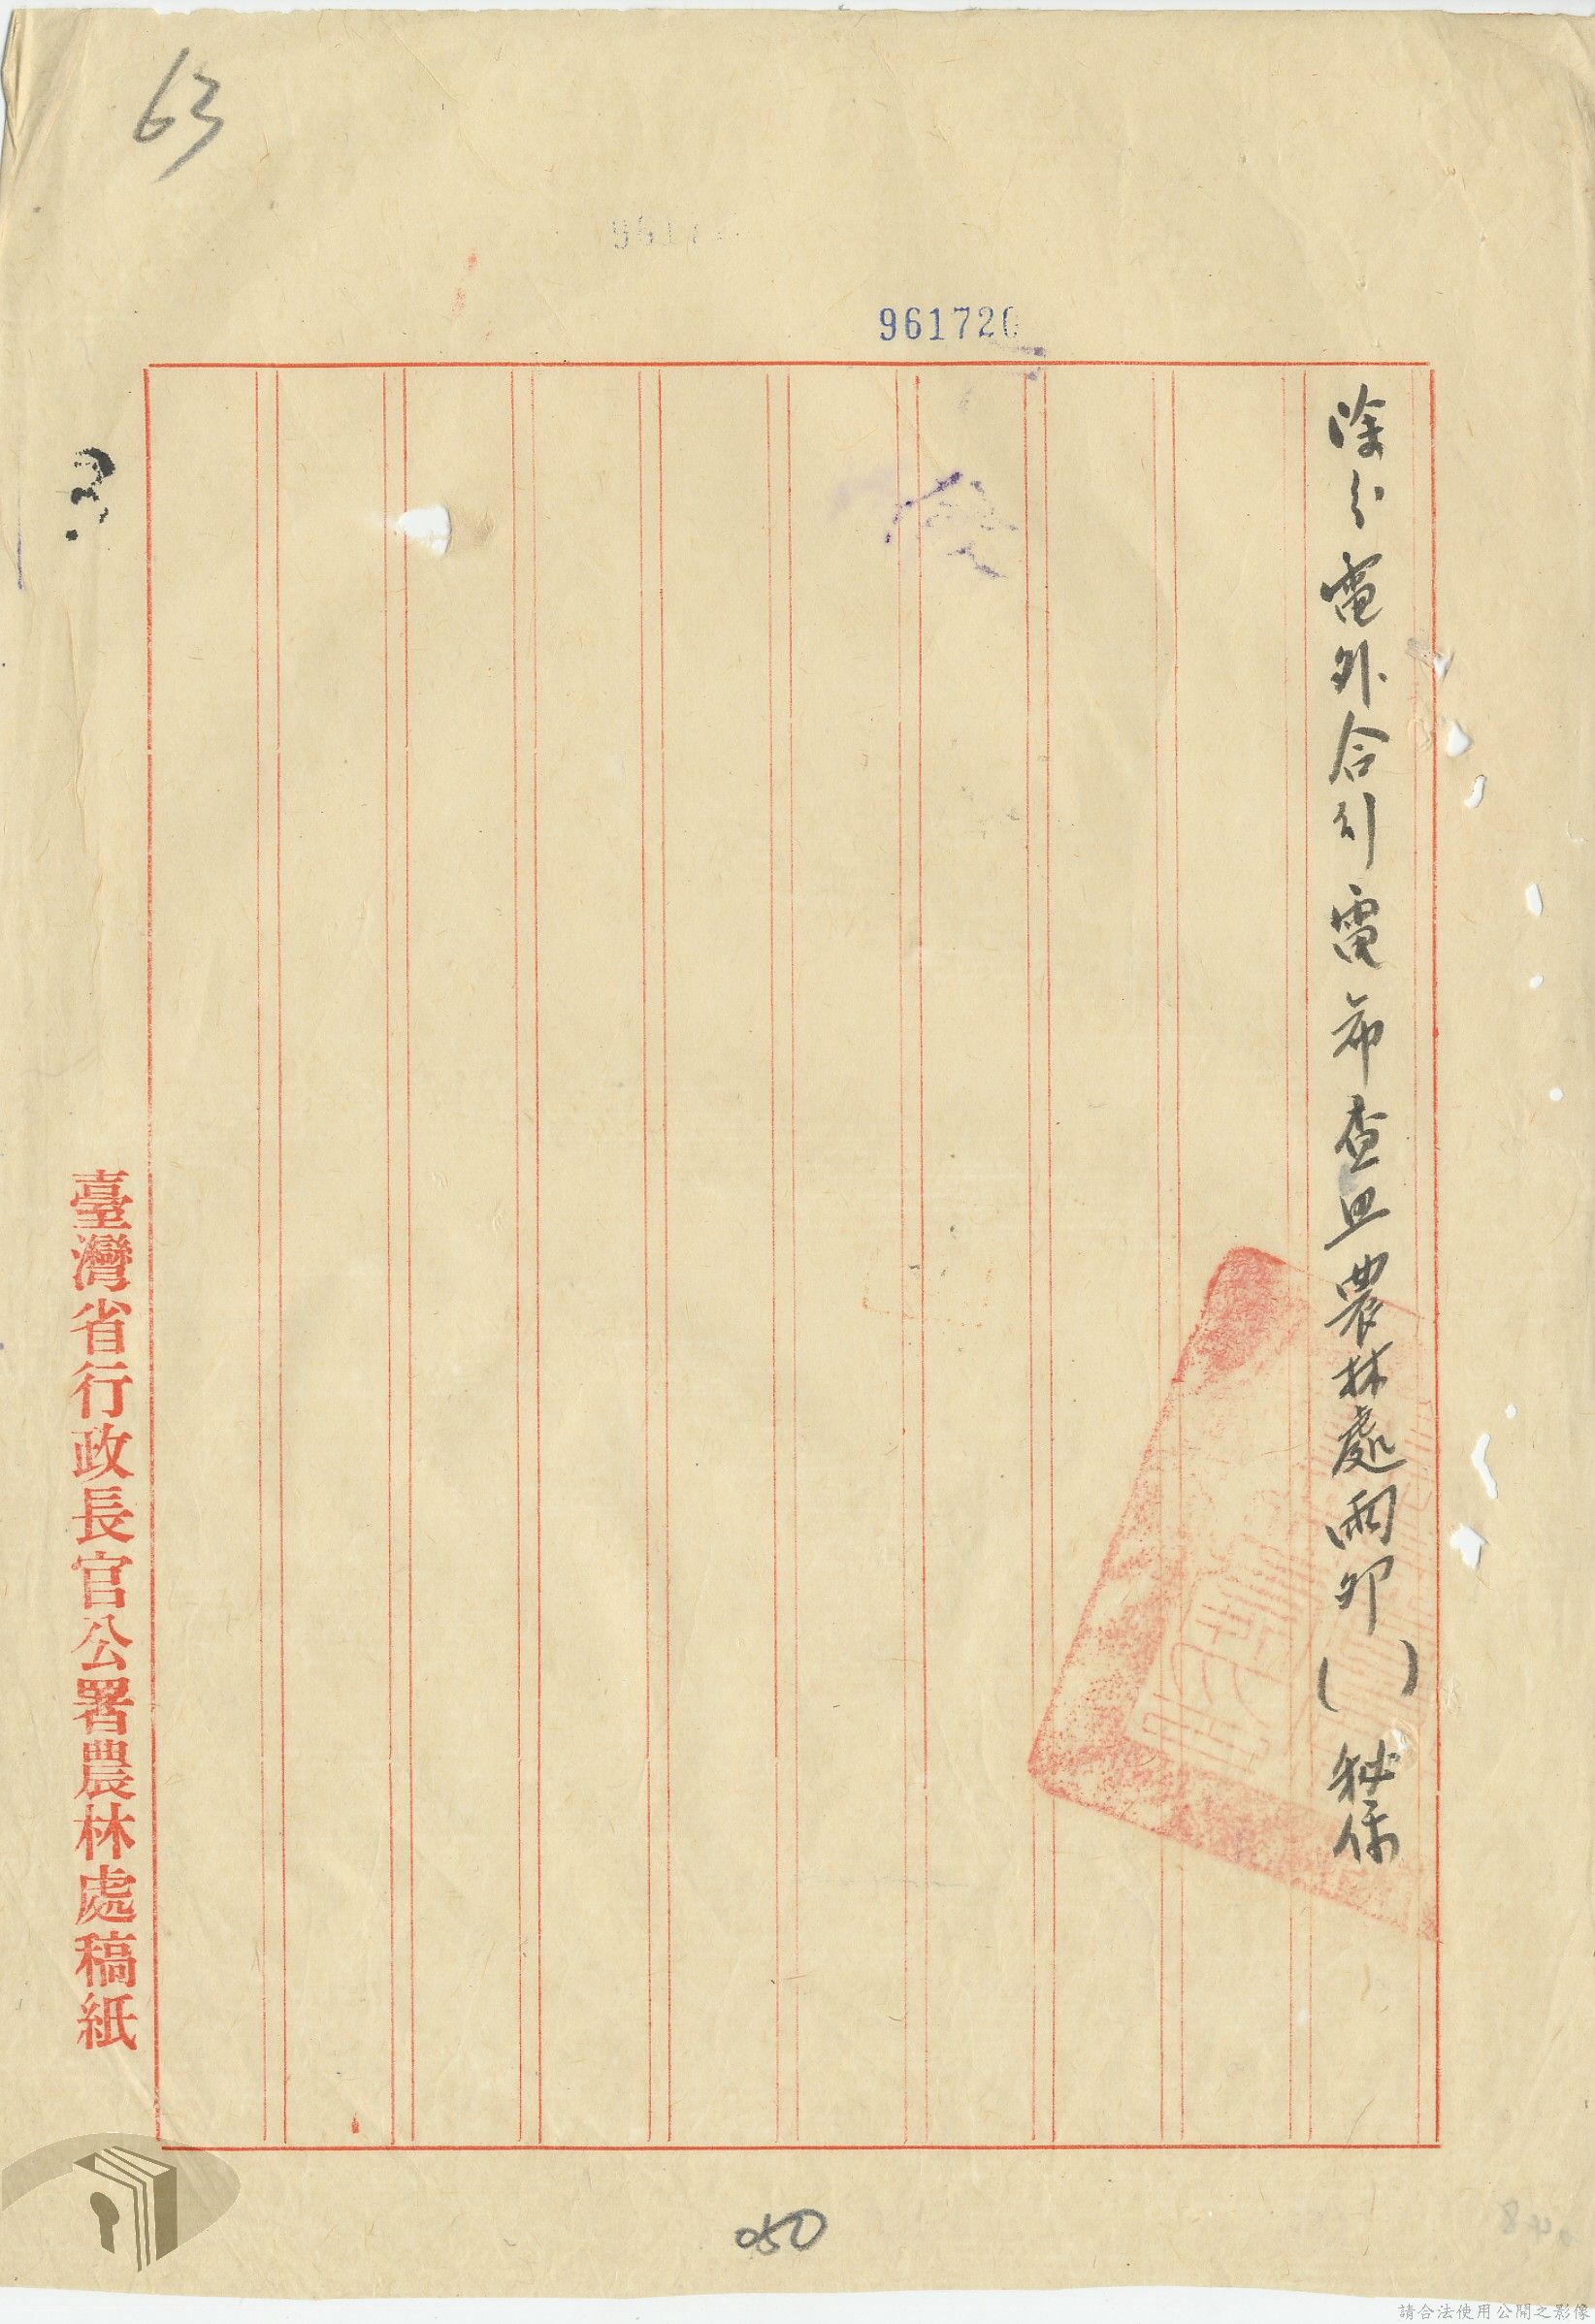 63
961720
除分電外合行電希查照農林處丙卯（ ）秘
臺灣省行政長官公署農林處稿紙
050
請合法使用公開之影像